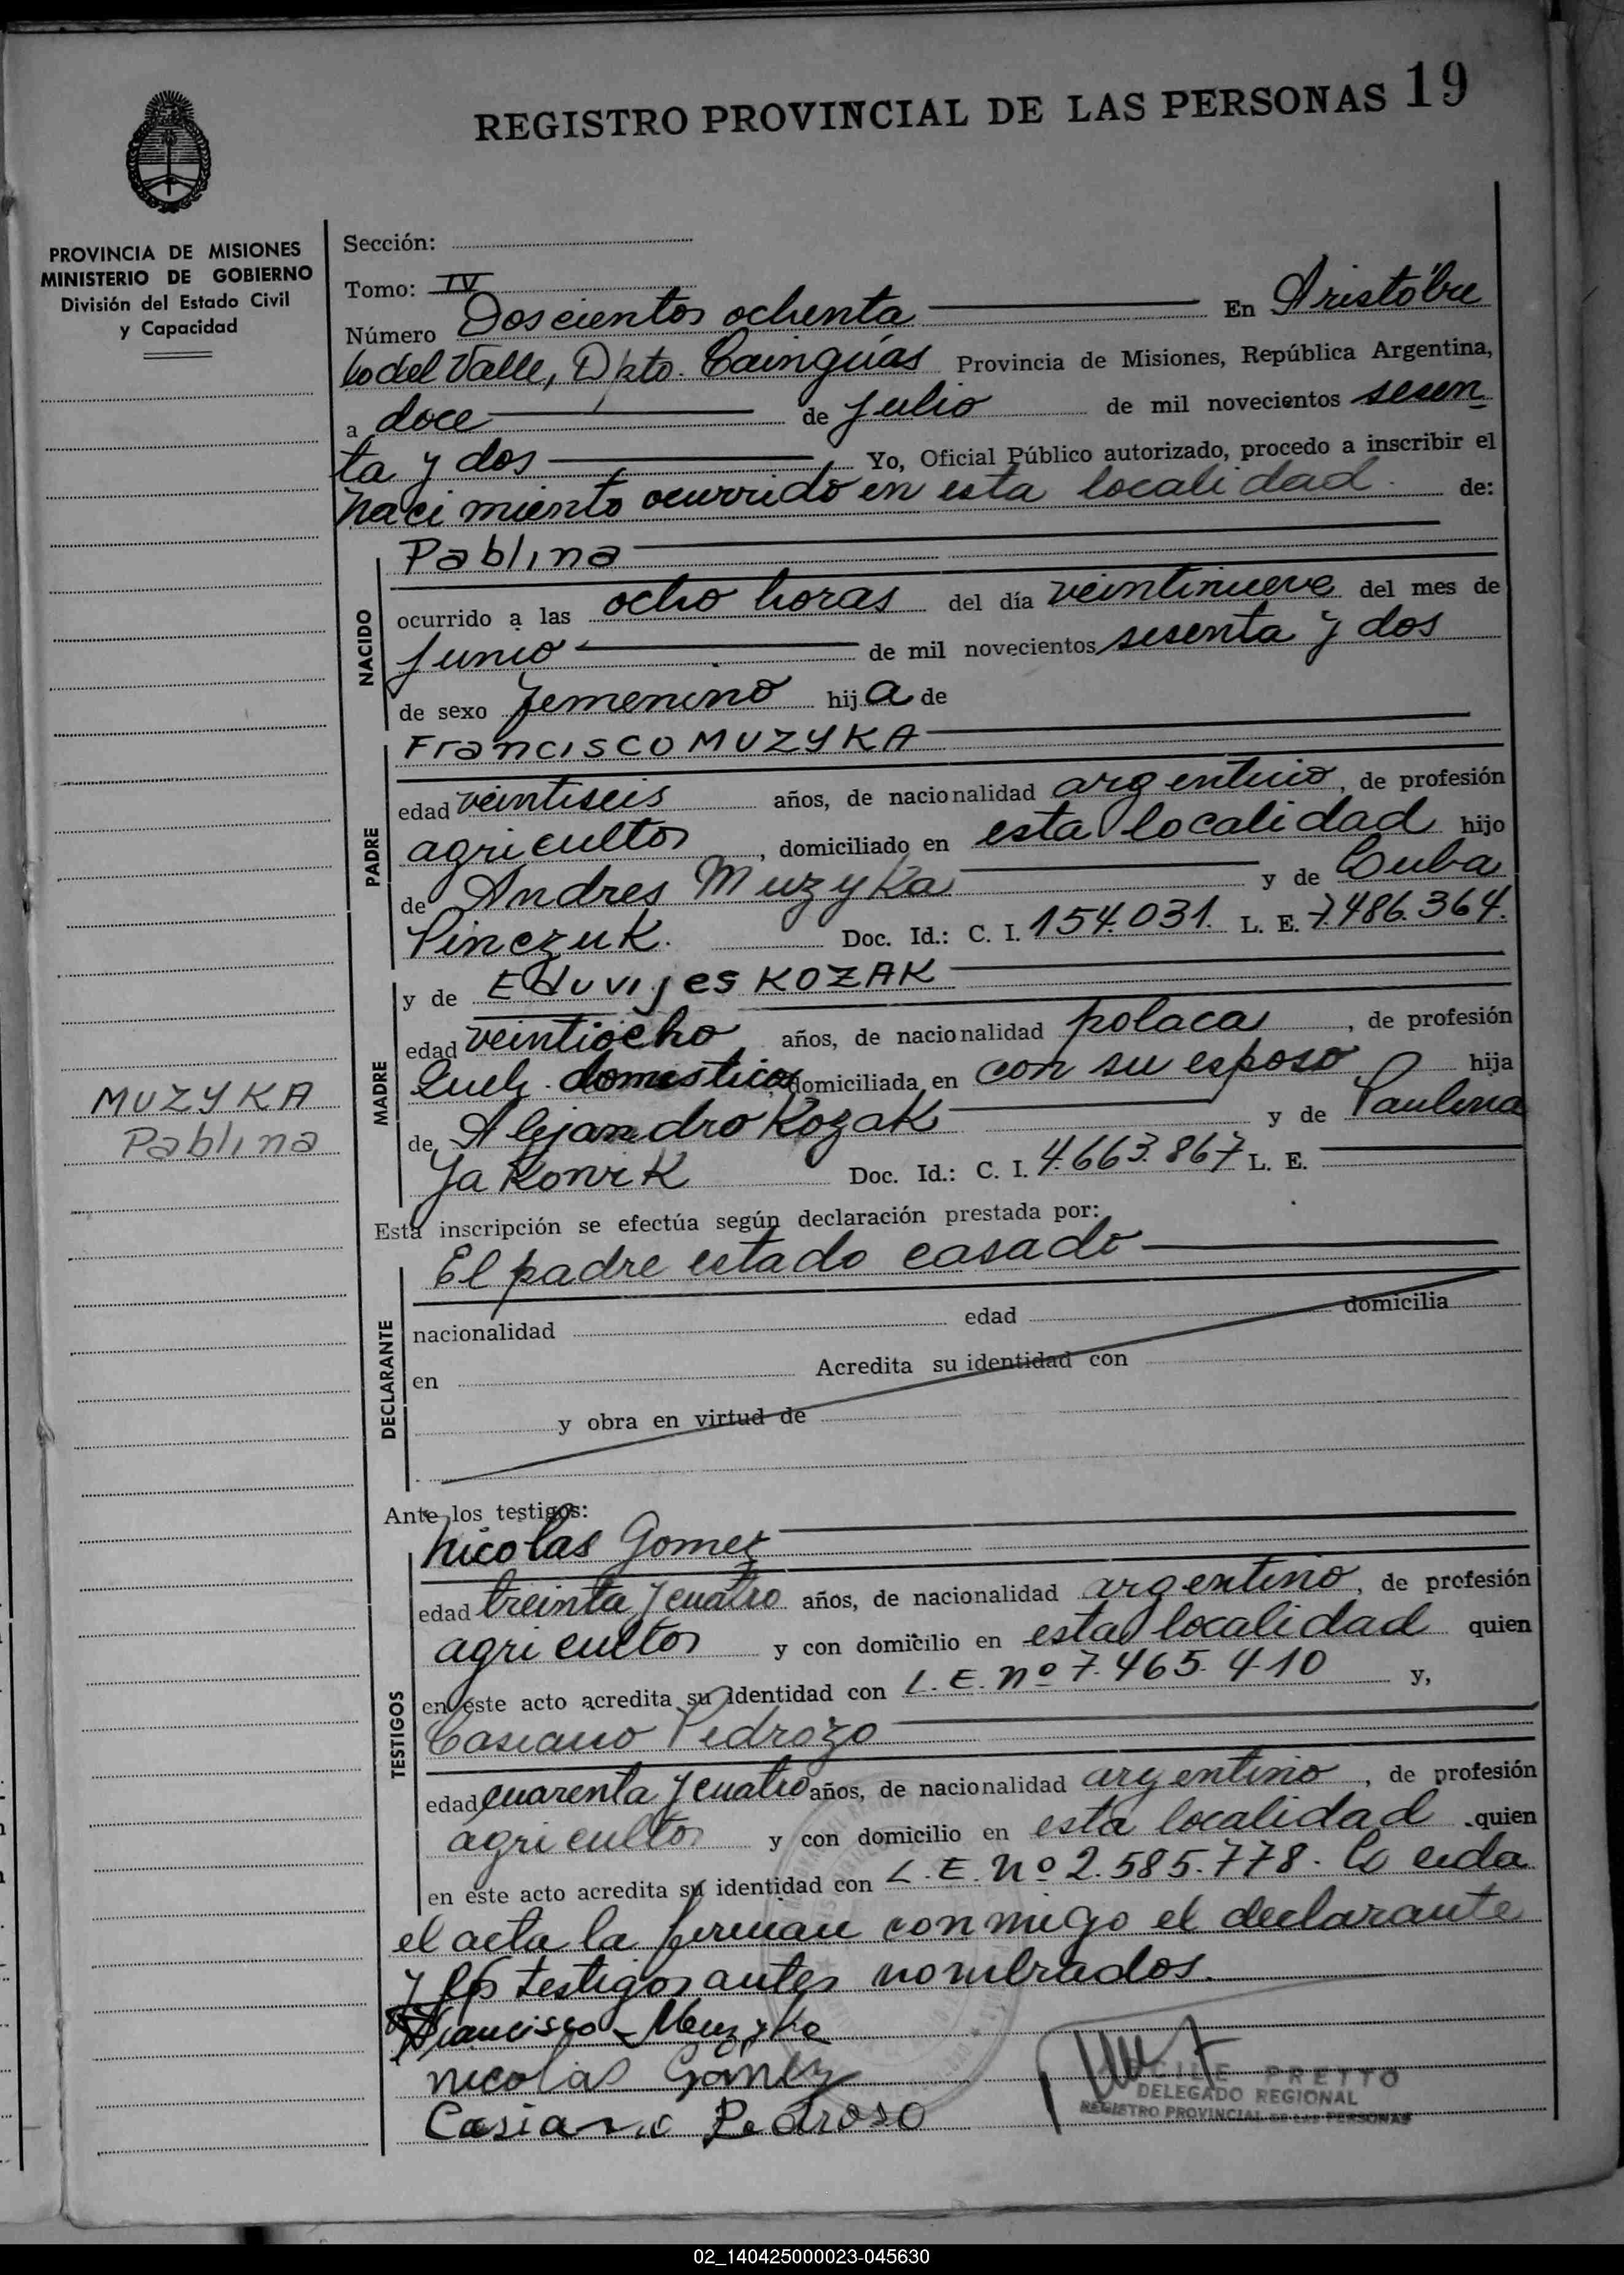 REGISTRO PROVINCIAL DE LAS PERSONAS 19
PROVINCIA DE MISIONES
MINISTERIO DE GOBIERNO
División del Estado Civil
y Capacidad
Sección:
Tomo: IV
Número Doscientos ochenta En Aristóbu
lo del Valle, Dpto. Cainguás Provincia de Misiones, República Argentina,
a doce de Julio de mil novecientos sesen
ta y dos Yo, Oficial Público autorizado, procedo a inscribir el
nacimiento ocurrido en esta localidad de:
NACIDO
Pablina
ocurrido a las ocho horas del día veintinueve del mes de
Junio de mil novecientos sesenta y dos
de sexo femenino hija de
PADRE
Francisco MUZYKA
edad veintiseis años, de nacionalidad argentino, de profesión
agricultor, domiciliado en esta localidad hijo
de Andres Muzyka y de Cuba
Pinczuk. Doc. Id.: C. I. 154.031. L. E. 7.486.364.
MADRE
y de Eduvijes KOZAK
edad veintiocho años, de nacionalidad polaca, de profesión
Queh. domesticos domiciliada en con su esposo hija
de Alejandro Kozak y de Paulina
Jakonik Doc. Id.: C. I. 4.663.867 L. E.
MUZYKA
Pablina
Esta inscripción se efectúa según declaración prestada por:
DECLARANTE
El padre estado casado
nacionalidad edad domicilia
en Acredita su identidad con
y obra en virtud de
Ante los testigos:
TESTIGOS
Nicolas Gomez
edad treinta y cuatro años, de nacionalidad argentino, de profesión
agricultor y con domicilio en esta localidad quien
en este acto acredita su identidad con L. E. nº 7.465.410 y,
Casiano Pedrozo
edad cuarenta y cuatro años, de nacionalidad argentino, de profesión
agricultor y con domicilio en esta localidad quien
en este acto acredita su identidad con L. E. Nº 2.585.778. Leida
el acta la firman conmigo el declarante
y los testigos antes nombrados.
Francisco Muzyka
nicolas Gómez
Casiano Pedroso
PRETTO
DELEGADO REGIONAL
REGISTRO PROVINCIAL DE LAS PERSONAS
02_140425000023-045630